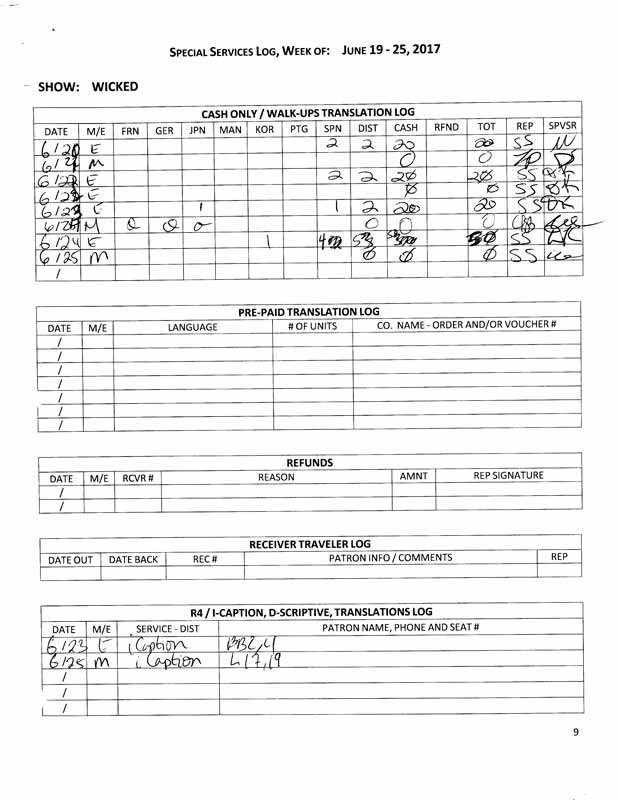 SPECIAL SERVICES LOG, WEEK OF: JUNE 19 - 25, 2017
SHOW: WICKED
CASH ONLY / WALK-UPS TRANSLATION LOG
DATE M/E FRN GER JPN MAN KOR PTG SPN DIST CASH RFND TOT REP SPVSR
6/20 E 2 2 20 20 SS
6/21 M 0 0
6/22 E 2 2 20 20 SS
6/23 E 0 0 SS
6/23 E 1 1 2 20 20 SS
M 0 0 0 0 0 0
6/24 E 1 50 SS
6/25 M 0 0 0 SS
/
PRE-PAID TRANSLATION LOG
DATE M/E LANGUAGE # OF UNITS CO. NAME - ORDER AND/OR VOUCHER #
/
/
/
/
/
/
/
REFUNDS
DATE M/E RCVR # REASON AMNT REP SIGNATURE
/
/
RECEIVER TRAVELER LOG
DATE OUT DATE BACK REC # PATRON INFO / COMMENTS REP
R4 / I-CAPTION, D-SCRIPTIVE, TRANSLATIONS LOG
DATE M/E SERVICE - DIST PATRON NAME, PHONE AND SEAT #
6/23 E iCaption BB2,4
6/25 M iCaption L17,19
/
/
/
9